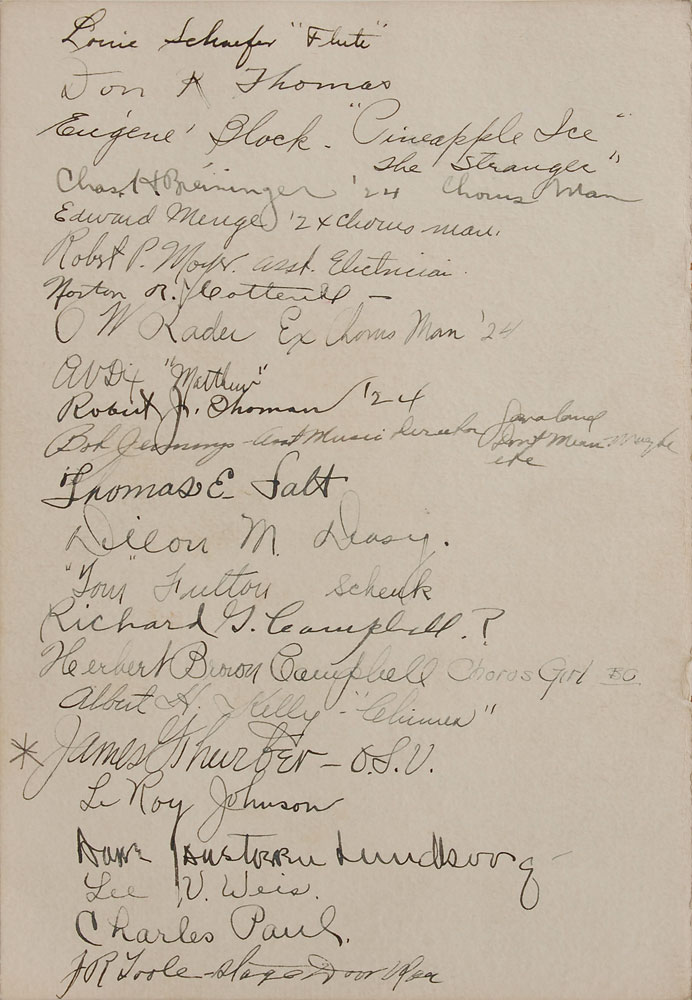 Louie Schaefer "Flute"
Don K Thomas
Eugene Block - "Pineapple Ice"
"The Stranger"
Chas. H. Breininger '24 Chorus Man
Edward Menge '2x Chorus man.
Robt P. Moyer. asst. Electrician.
Norton R. Cotterill -
O W Rader Ex Chorus Man '24
AV Dix "Matthew"
Robert J. Thoman '24
Bob Jennings - Asst Music Director
Don't Mean Maybe
Thomas E Salt
Dillon M. Deasy.
"Tom" Fulton Schenk
Richard G. Campbell.?
Herbert Brown Campbell Chorus Girl
Albert H. Kelly - "Chimes"
* James Thurber - O.S.U.
Le Roy Johnson
Lee V. Weis.
Charles Paul.
JR Toole - Stage Door Man